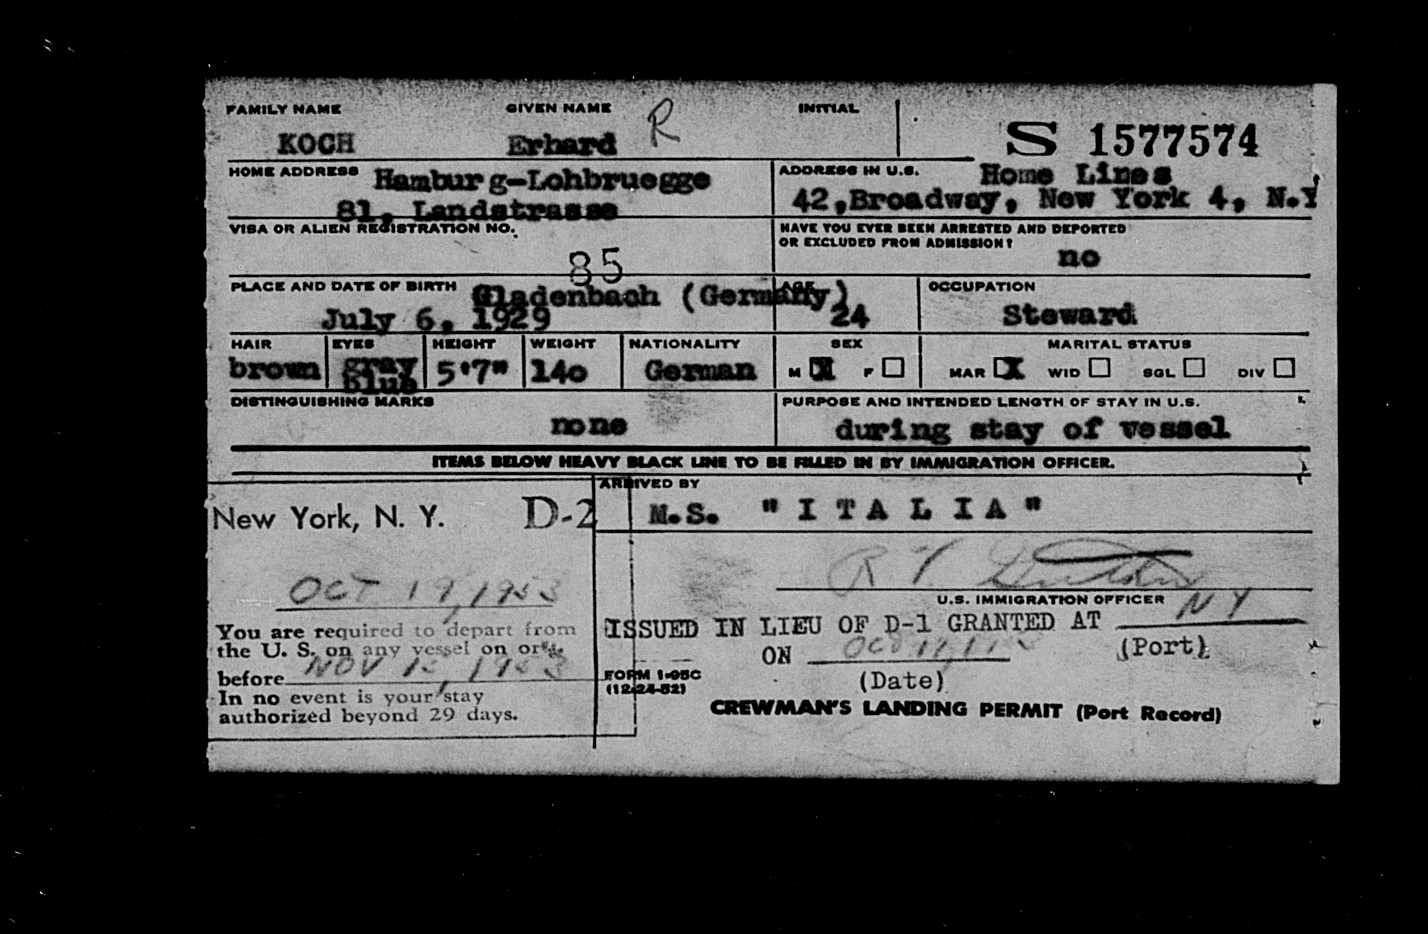 FAMILY NAME GIVEN NAME INITIAL
KOCH Erhard R S 1577574
HOME ADDRESS Hamburg-Lohbruegge
81, Landstrasse
ADDRESS IN U.S. Home Lines
42,Broadway, New York 4, N.Y
VISA OR ALIEN REGISTRATION NO.
85
HAVE YOU EVER BEEN ARRESTED AND DEPORTED
OR EXCLUDED FROM ADMISSION?
no
PLACE AND DATE OF BIRTH Gladenbach (Germany)
July 6, 1929
AGE
24
OCCUPATION
Steward
HAIR EYES HEIGHT WEIGHT NATIONALITY SEX MARITAL STATUS
brown gray 5'7" 140 German M X F MAR X WID SGL DIV
blue
DISTINGUISHING MARKS
none
PURPOSE AND INTENDED LENGTH OF STAY IN U.S.
during stay of vessel
ITEMS BELOW HEAVY BLACK LINE TO BE FILLED IN BY IMMIGRATION OFFICER.
New York, N. Y. D-2
OCT 19, 1953
You are required to depart from
the U. S. on any vessel on or
before NOV 1 , 1953
In no event is your stay
authorized beyond 29 days.
ARRIVED BY
M.S. "I T A L I A"
R
U.S. IMMIGRATION OFFICER
ISSUED IN LIEU OF D-1 GRANTED AT NY
(Port)
ON OCT
(Date)
FORM I-95C
(12-24-52)
CREWMAN'S LANDING PERMIT (Port Record)